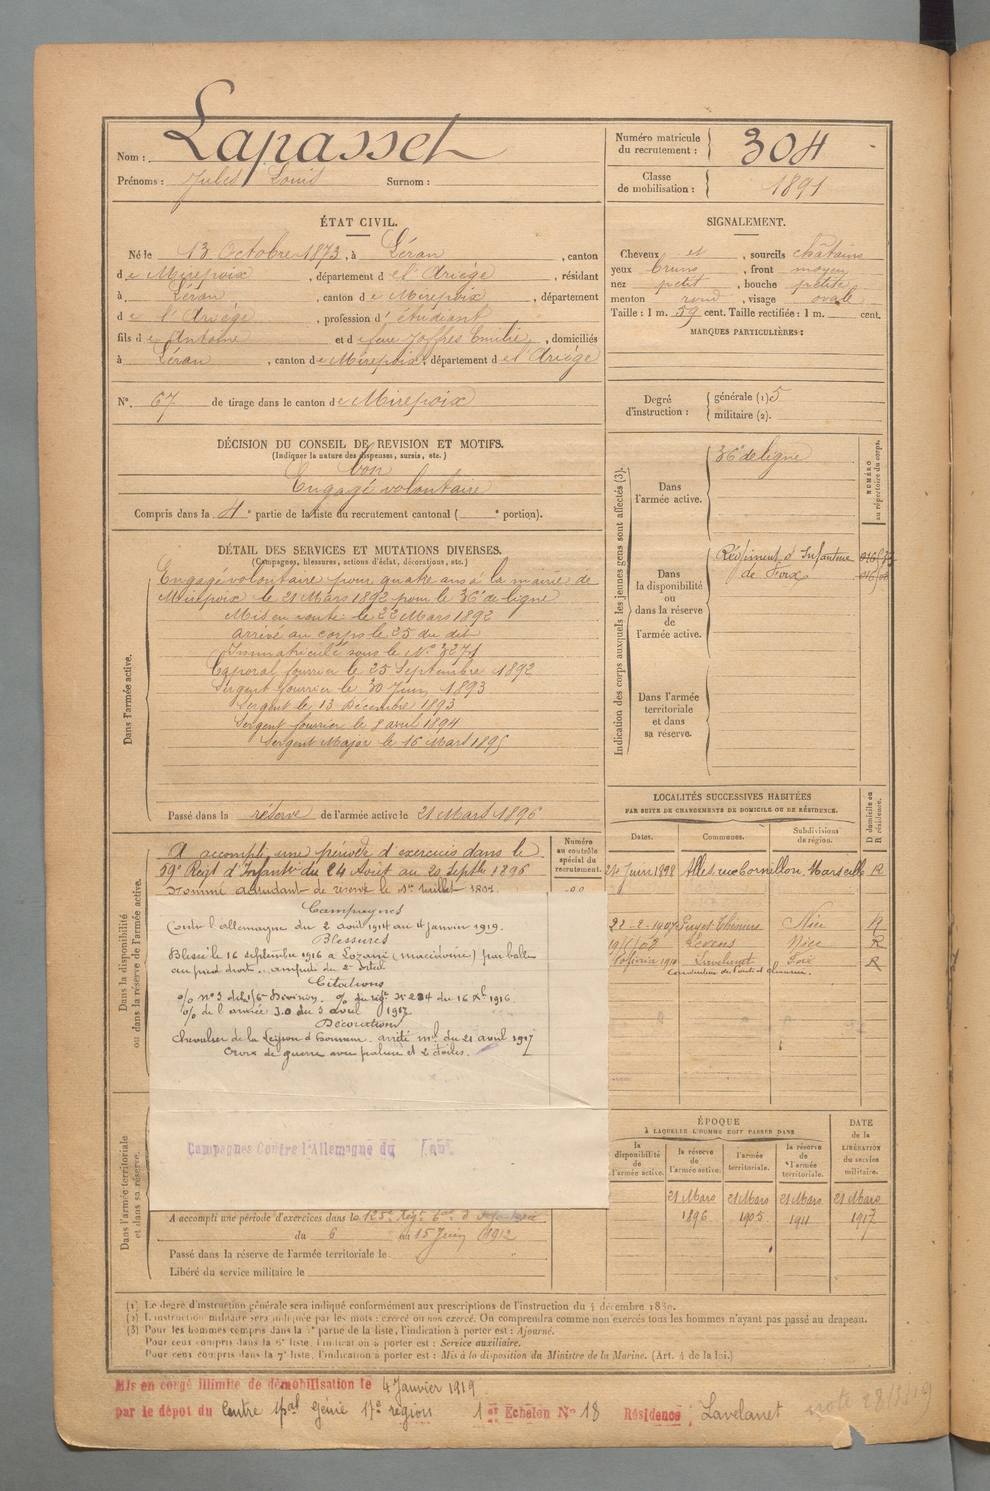 Nom : Lapasset
Prénoms : Jules Louis Surnom :
Numéro matricule du recrutement : 304
Classe de mobilisation : 1891
ÉTAT CIVIL.
Né le 13 Octobre 1873, à Léran, canton
de Mirepoix, département de l'Ariège, résidant
à Léran, canton de Mirepoix, département
de l'Ariège, profession d'étudiant
fils de Antoine et de feue Joffres Emilie, domiciliés
à Léran, canton de Mirepoix, département de l'Ariège
N° 67 de tirage dans le canton de Mirepoix
SIGNALEMENT.
Cheveux et, sourcils châtains
yeux bruns, front moyen
nez petit, bouche petite
menton rond, visage ovale
Taille : 1 m. 59 cent. Taille rectifiée : 1 m. cent.
MARQUES PARTICULIÈRES :
Degré d'instruction :
générale (1) 5
militaire (2).
DÉCISION DU CONSEIL DE REVISION ET MOTIFS.
(Indiquer la nature des dispenses, sursis, etc.)
bon
Engagé volontaire
Compris dans la 4e partie de la liste du recrutement cantonal ( e portion).
DÉTAIL DES SERVICES ET MUTATIONS DIVERSES.
(Campagnes, blessures, actions d'éclat, décorations, etc.)
Dans l'armée active.
Engagé volontaire pour quatre ans à la mairie de
Mirepoix le 21 Mars 1892 pour le 36e de ligne
Mis en route le 22 Mars 1892
arrivé au corps le 25 du dit
Immatriculé sous le N° 3271
Caporal fourrier le 25 Septembre 1892
Sergent fourrier le 30 Juin 1893
Sergent le 13 Décembre 1893
Sergent fourrier le 8 avril 1894
Sergent Major le 16 Mars 1895
Passé dans la réserve de l'armée active le 21 Mars 1896
Indication des corps auxquels les jeunes gens sont affectés (3).
NUMÉRO au répertoire du corps.
Dans l'armée active.
36e de ligne
Dans la disponibilité ou dans la réserve de l'armée active.
Régiment d'Infanterie
de Foix
Dans l'armée territoriale et dans sa réserve.
LOCALITÉS SUCCESSIVES HABITÉES
PAR SUITE DE CHANGEMENTS DE DOMICILE OU DE RÉSIDENCE.
Dates. Communes. Subdivisions de région. D domicile ou R résidence.
Juin 1898 rue Marseille R
22-2-1907 Nice R
Levens Nice R
1910 Lavelanet Foix R
Dans la disponibilité ou dans la réserve de l'armée active.
Numéro au contrôle spécial du recrutement.
A accompli une période d'exercices dans le
Régt d'Infantie du 24 Août au 20 Septbre 1896
Nommé adjudant de réserve le 1er Juillet
Campagnes
Contre l'Allemagne du 2 août 1914 au 4 janvier 1919.
Blessures
Blessé le 16 septembre 1916 à (macédoine) par balle
au pied droit. amputé du 2e orteil
Citations
Division. du régt N° 284 du 16 1916.
de l'armée 30 du 3 avril 1917
Décorations
Chevalier de la Légion d'honneur. arrêté ml du 21 avril 1917
Croix de guerre avec palme et 2 étoiles.
Campagnes Contre l'Allemagne du au
Dans l'armée territoriale et dans sa réserve.
A accompli une période d'exercices dans le
du 6 au 15 Juin 1912
Passé dans la réserve de l'armée territoriale le
Libéré du service militaire le
ÉPOQUE
À LAQUELLE L'HOMME DOIT PASSER DANS
la disponibilité de l'armée active. la réserve de l'armée active. l'armée territoriale. la réserve de l'armée territoriale.
DATE de la LIBÉRATION du service militaire.
21 Mars 1896 21 Mars 1905 21 Mars 1911 21 Mars 1917
(1) Le degré d'instruction générale sera indiqué conformément aux prescriptions de l'instruction du 4 décembre 1889.
(2) L'instruction militaire sera indiquée par les mots : exercé ou non exercé. On comprendra comme non exercés tous les hommes n'ayant pas passé au drapeau.
(3) Pour les hommes compris dans la partie de la liste, l'indication à porter est : Ajourné.
Pour ceux compris dans la 6e liste, l'indication à porter est : Service auxiliaire.
Pour ceux compris dans la 7e liste, l'indication à porter est : Mis à la disposition du Ministre de la Marine. (Art. 4 de la loi.)
Mis en congé illimité de démobilisation le 4 Janvier 1919
par le dépôt du Centre Génie 17e région 1er Echelon N° 18 Résidence : Lavelanet